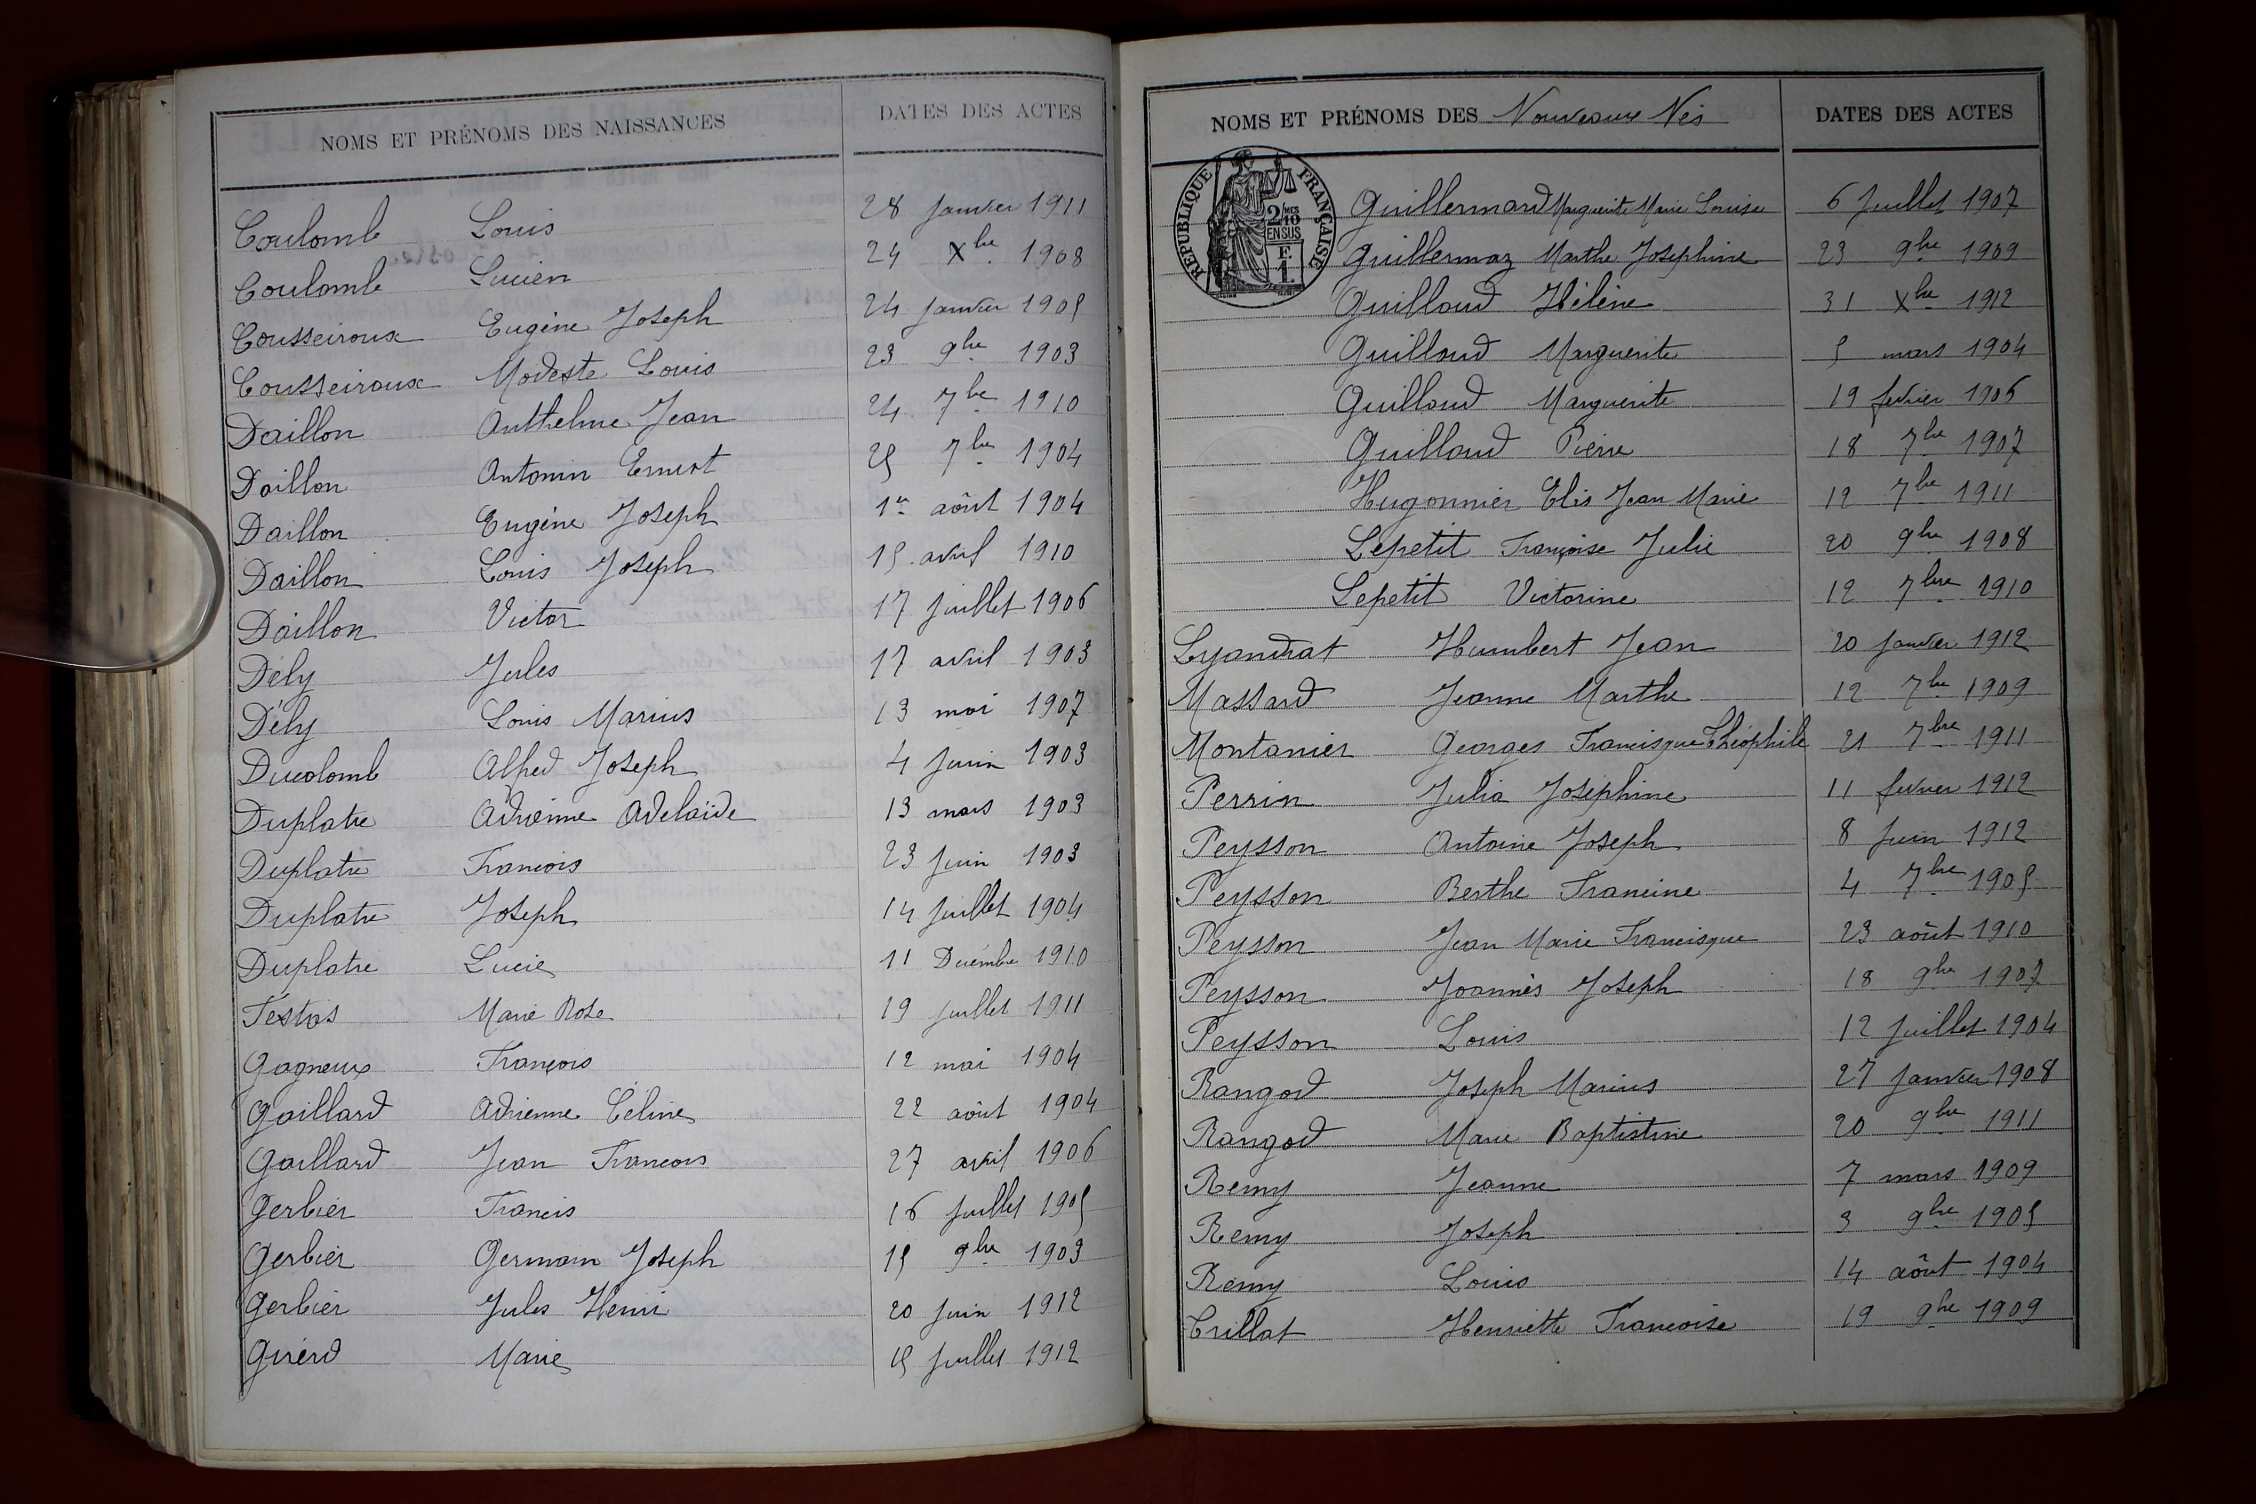 NOMS ET PRÉNOMS DES NAISSANCES DATES DES ACTES
Coulomb Louis 28 janvier 1911
Coulomb Lucien 24 Xbre 1908
Cousseiroux Eugène Joseph 24 janvier 1905
Cousseiroux Modeste Louis 23 9bre 1903
Daillon Anthelme Jean 24 7bre 1910
Daillon Antonin Ernest 25 7bre 1904
Daillon Eugène Joseph 1er août 1904
Daillon Louis Joseph 15 avril 1910
Daillon Victor 17 juillet 1906
Dély Jules 17 avril 1903
Dély Louis Marius 13 mai 1907
Ducolomb Alfred Joseph 4 juin 1903
Duplatre Adrienne Adelaïde 13 mars 1903
Duplatre Francois 23 juin 1903
Duplatre Joseph 14 juillet 1904
Duplatre Lucie 11 Décembre 1910
Festas Marie Rose 19 juillet 1911
Gagneux François 12 mai 1904
Gaillard Adrienne Céline 22 août 1904
Gaillard Jean Francois 27 avril 1906
Gerbier Francis 16 juillet 1905
Gerbier Germain Joseph 15 9bre 1903
Gerbier Jules Henri 20 juin 1912
Girerd Marie 15 juillet 1912
NOMS ET PRÉNOMS DES Nouveaux Nés DATES DES ACTES
RÉPUBLIQUE FRANÇAISE
2/10MES
EN SUS
F.
1
Guillermard Marguerite Marie Louise 6 juillet 1907
Guillermaz Marthe Josephine 23 9bre 1909
Guilloud Hélène 31 Xbre 1912
Guilloud Marguerite 5 mars 1904
Guilloud Marguerite 19 fevrier 1906
Guilloud Pierre 18 7bre 1907
Hugonnier Elis Jean Marie 12 7bre 1911
Lepetit Françoise Julie 20 9bre 1908
Lepetit Victorine 12 7bre 1910
Lyandrat Humbert Jean 20 janvier 1912
Massard Jeanne Marthe 12 7bre 1909
Montanier Georges Francisque Théophile 21 7bre 1911
Perrin Julia Joséphine 11 fevrier 1912
Peysson Antoine Joseph 8 juin 1912
Peysson Berthe Francine 4 7bre 1905
Peysson Jean Marie Francisque 23 août 1910
Peysson Joannès Joseph 18 9bre 1907
Peysson Louis 12 juillet 1904
Rangod Joseph Marius 27 janvier 1908
Rangod Marie Baptistine 20 9bre 1911
Remy Jeanne 7 mars 1909
Remy Joseph 3 9bre 1905
Remy Louis 14 août 1904
Trillat Henriette Francoise 19 9bre 1909